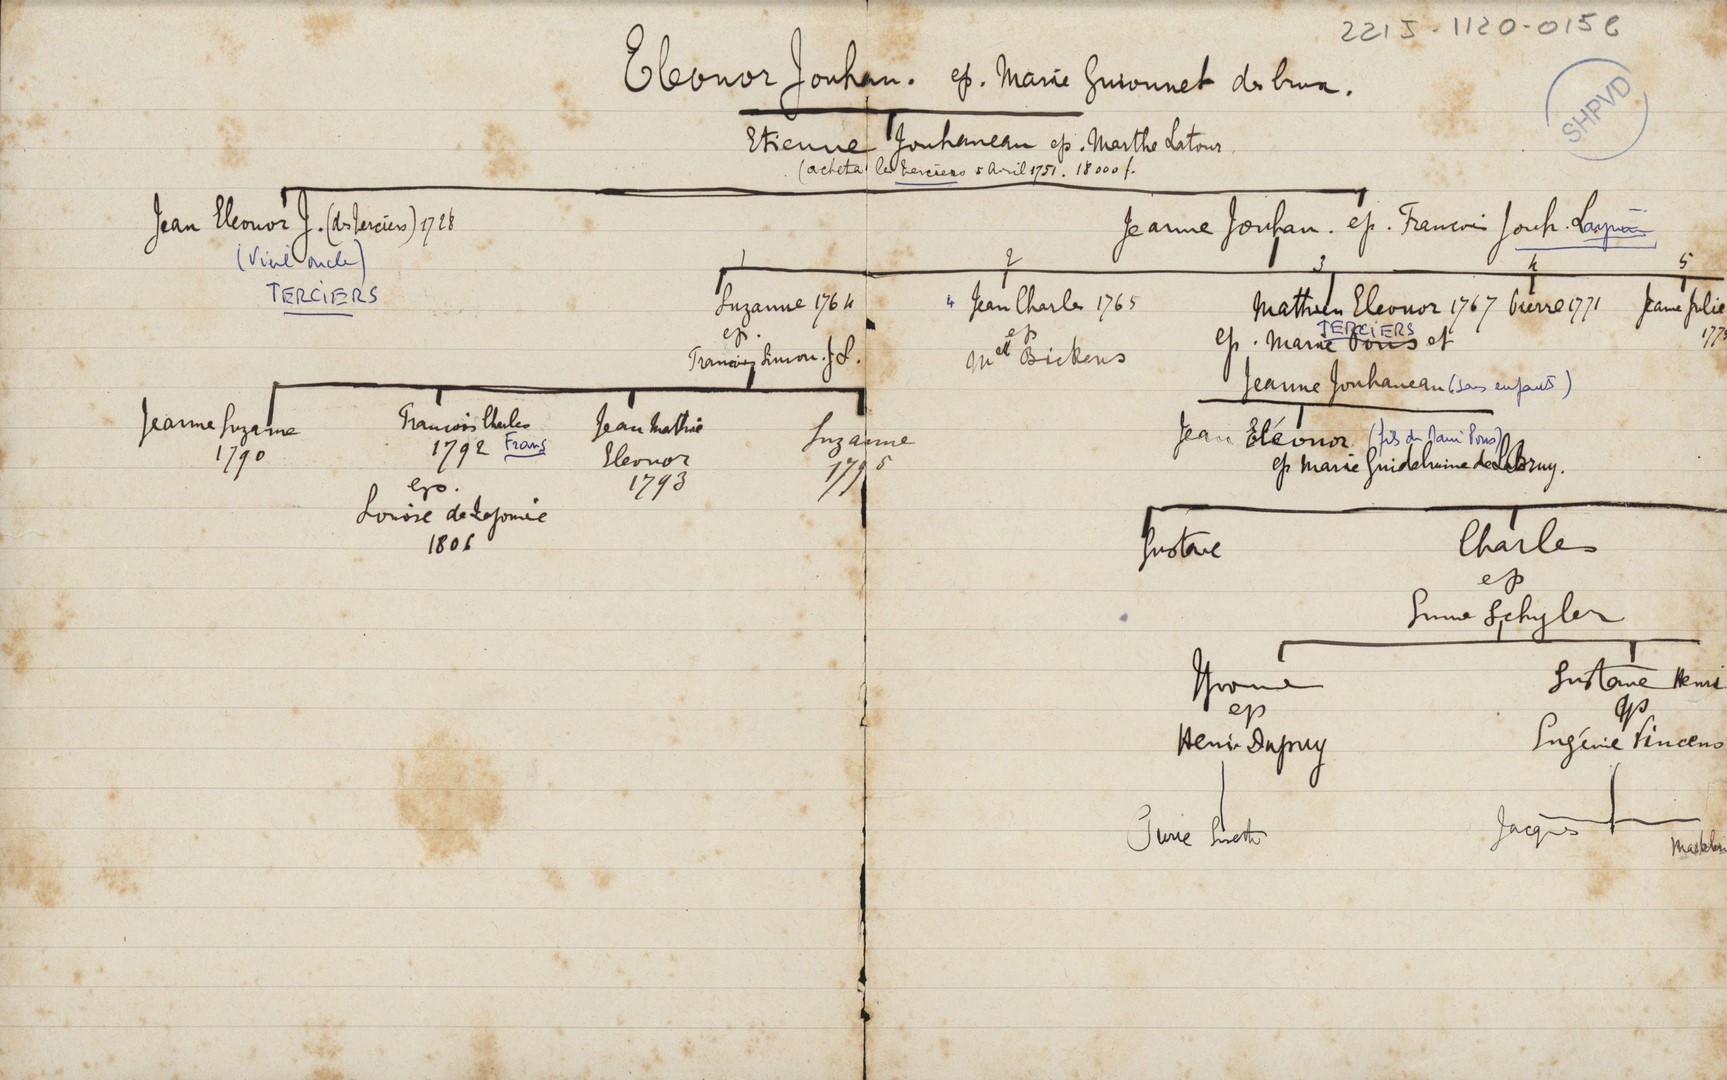 2215-1120-015
SHPVD
Eleonor Jouhan. ep. Marie Guionnet des brux.
Etienne Jouhaneau ep. Marthe Latour
(acheta les Terciers 5 Avril 1751. 18000 f.
Jean Eleonor J. (des Terciers) 1728
TERCIERS
Jeanne Jouhan. ep. Francois Jouh.
1 2 3 4 5
Suzanne 1764
ep.
Francois Simon. J. L.
4 Jean Charles 1765
ep
Melle Bickens
Mathieu Eleonor 1767
TERCIERS
ep. Marie Pons et
Jeanne Jouhaneau (sans enfants)
Pierre 1771
Jeanne Julie
177
Jeanne Suzanne
1790
Francois Charles
1792
ep.
Louise de
1806
Jean Mathieu
Eleonor
1793
Suzanne
1795
Jean Eléonor (fils de Marie Pons)
ep Marie
Gustave
Charles
ep
Schyler
Yvonne
ep
Henri Dupuy
Gustave Henri
ep
Eugénie Vincens
Jacques